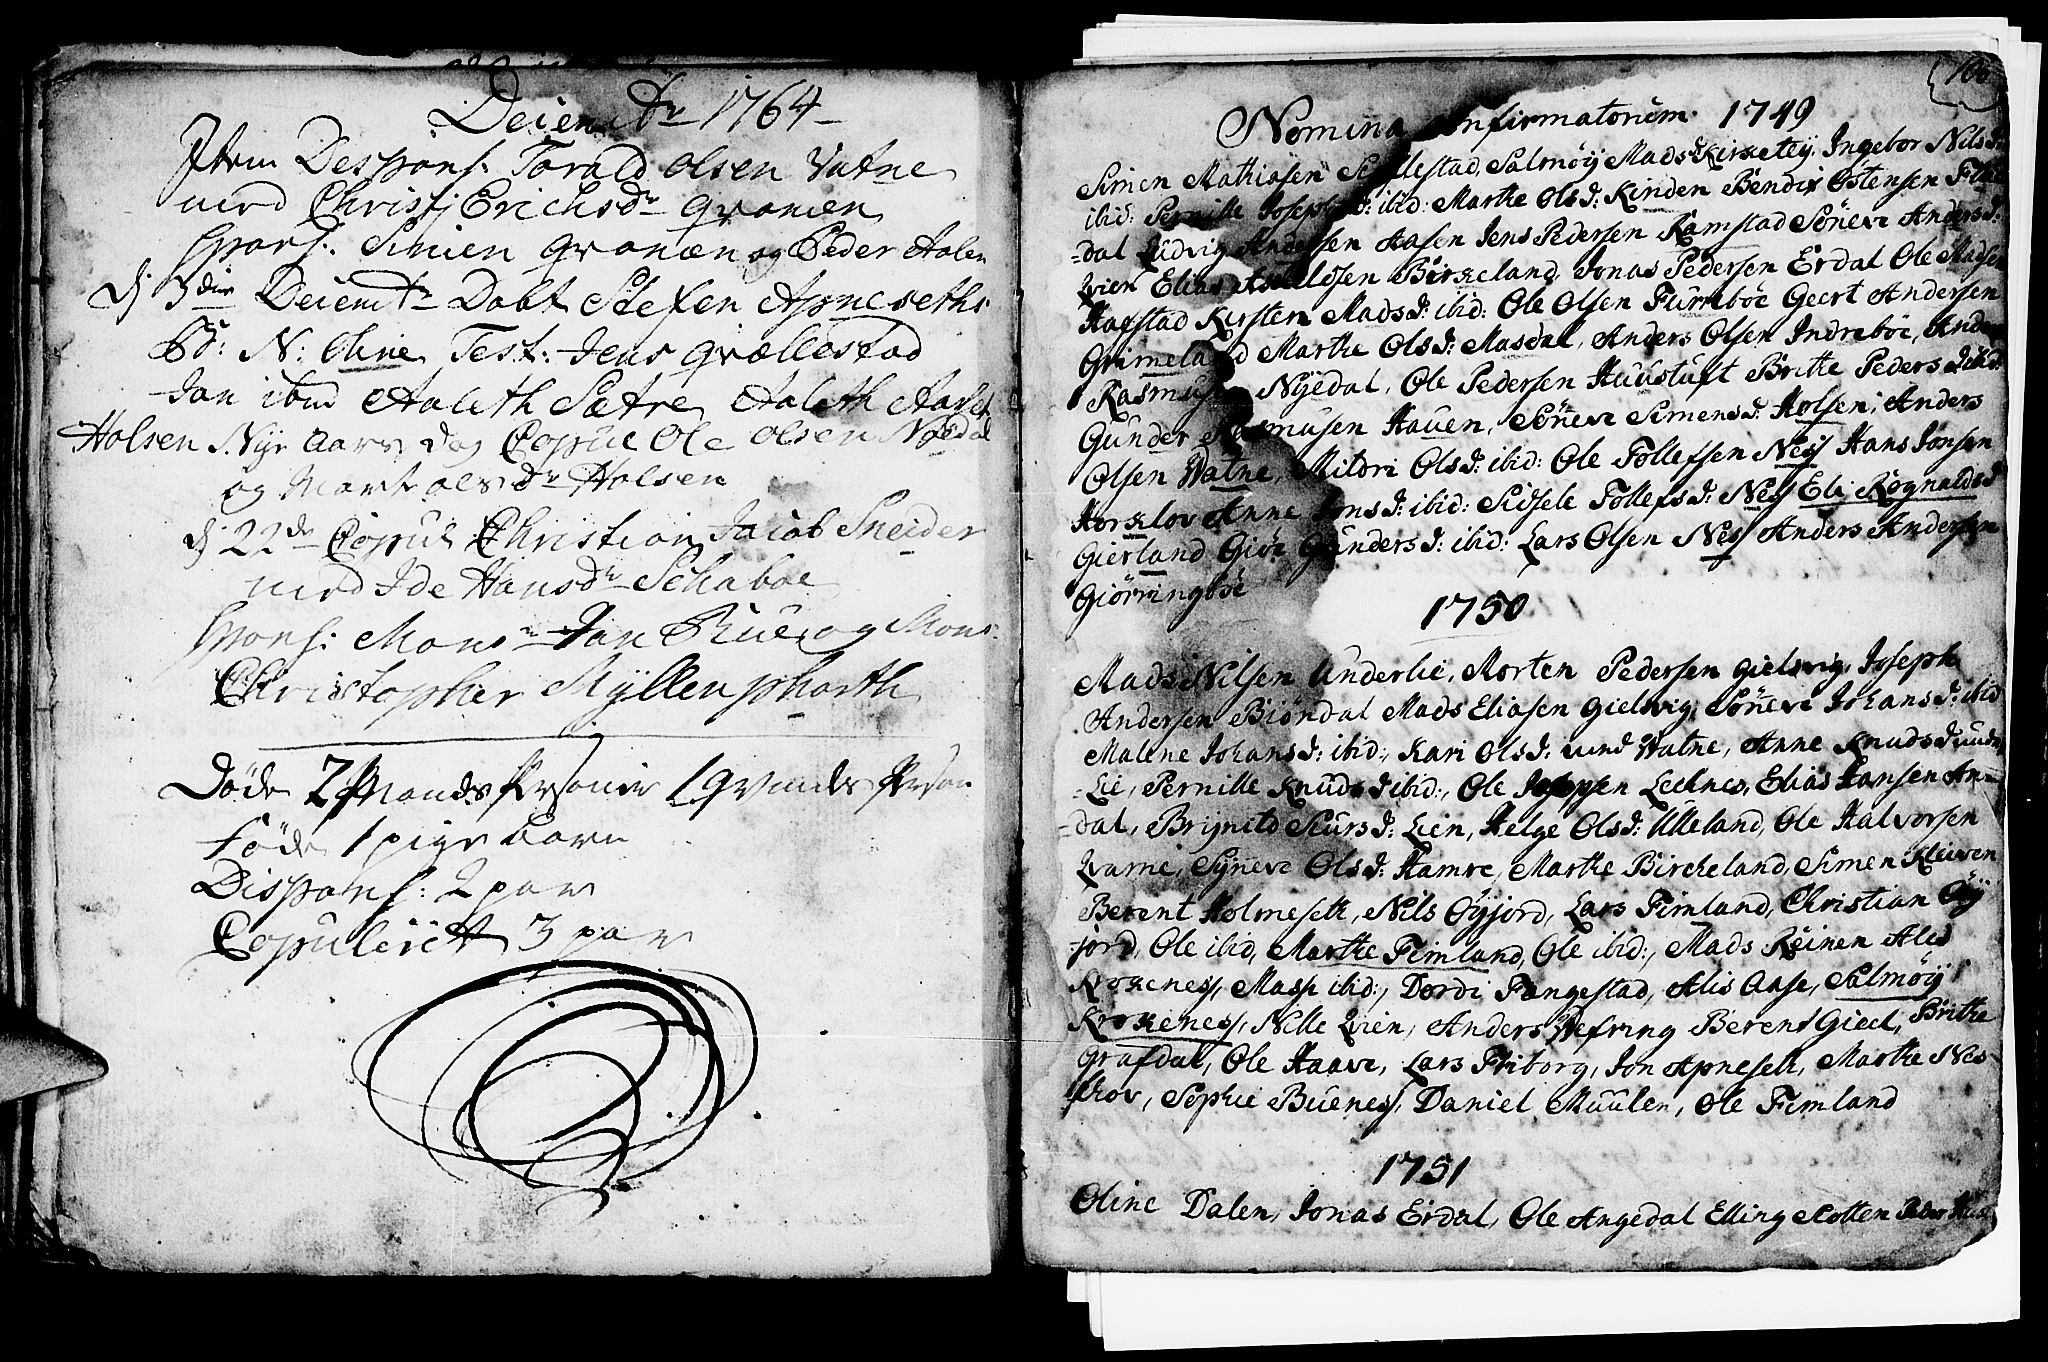 Decembr 1764
Item Despons: Torald Olsen Vatne
med Christj Erichsdr Qvamen
spons: Simen Qvamen og Peder Aalen
Dj 3die Decembr Døbt Stefen Apneseths
Bd: N: Oline Test: Jens Qvællestad
Jan ibid Aaleth Sætre Aaleth
Holsen S. Nyt Aars dag Copul Ole Olsen
og Mart olsdr Holsen
dj 22de Copul Christian Jacob Sneider
med Ide Hansdr Schaboe
spons: Monsr Jan og Mons:
Christopher Myllenphorth
Døde 2 Mands Personer 1 Qvinds Person
Føde 1 pige barn
Dispons: 2 par
Copuleret 3 par
106
Nomina Confirmatorum. 1749
Simen Mathiasen Salmøÿ Mads D: Kirketeÿ. Ingebor Nils D:
ibid: Pernille Joseph D: ibid: Marthe Ols D: Kinden Bendix Østensen
-dal Ludvig Andersen Aasen Jens Pedersen Ramstad Søneve Anders D:
Lien Elias Birkeland, Jonas Pedersen Erdal Ole Madsen
Hafstad Kirsten Mads D: ibid: Ole Olsen Furreböe Geert Andersen
Grimeland Marthe Ols D: Masdal, Anders Olsen Indreböe,
Rasmus Nÿedal, Ole Pedersen Haustuft Brithe Peders D: ibid:
Gunder Rasmusen Hauen, Söneve Simens D: Holsen, Anders
Olsen Watne, Mildri Ols D: ibid: Ole Tollefsen Ness Hans Jonsen
Horsklov Anne Jons D: ibid: Sidsele Tollefs D: Ness Eli Rognalds D
Gierland Giöe Gunders D: ibid: Lars Olsen Ness Anders Andersen
Giörringböe
1750
Mads Nilsen Underlie, Morten Pedersen Gielsvig, Joseph
Andersen Biöndal Mads Eliasen Gielsvig, Söneve Johans D: ibid
Malene Johans D: ibid:, Kari Ols D: und Watne, Anne Knuds D unde
-Lie, Pernille Knuds D ibid:, Ole Jeppsen Lechnes, Elias Hansen An-
dal, Brynild Siurs D: Lien, Helge Ols D: Ulleland, Ole Halvorsen
Qvarne, Syneve Ols D: Hamre, Marthe Bircheland, Simen Kleiven
Berent Holmeseth, Nils Öyjord, Lars Fimland, Christian Öÿ
-jord, Ole ibid, Marthe Fimland, Ole ibid:, Mads Röinen Aled
Krokenes, Mass ibid:, Dordi Fangestad, Alis Aase, Salmöÿ
Krokenes, Nille Lien, Anders Wefring Berent Gieel, Brithe
Grafdal, Ole Haave, Lars Friborg, Jon Apneseth, Marthe Nes-
schov, Sophie Buenes, Daniel Muulen, Ole Fimland
1751
Oline Dalen, Jonas Erdal, Ole Angedal Elling Peder